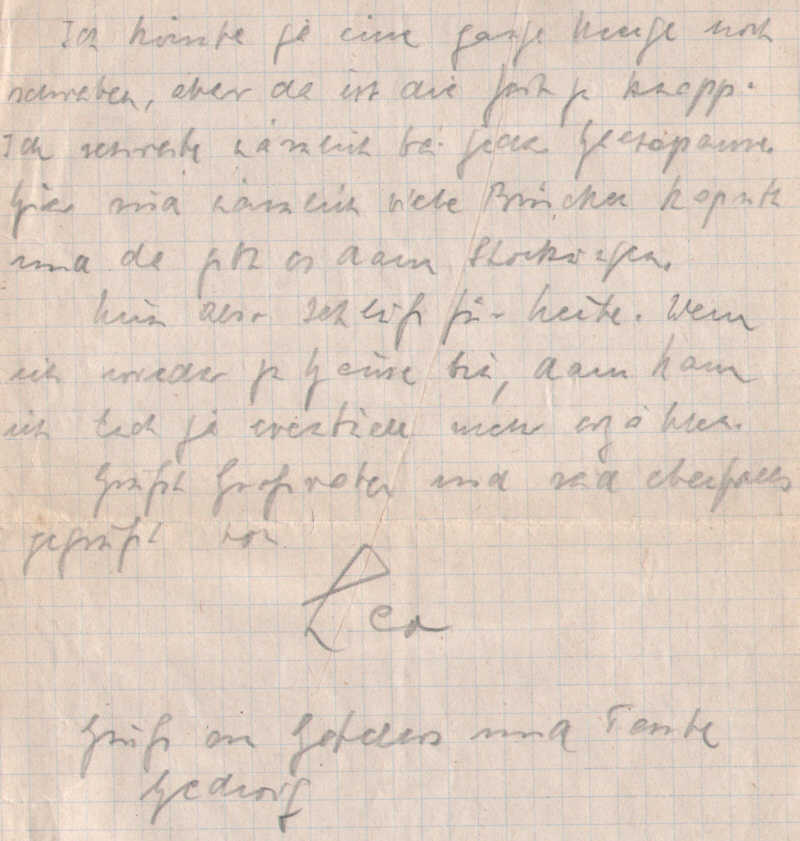 Ich könnte ja eine ganze Menge noch
schreiben, aber da ist die Zeit zu knapp.
Ich schreibe nämlich bei jeder
Hier sind nämlich viele Brücken kaputt
und da gibt es dann Stockungen.
Nun aber Schluß für heute. Wenn
ich wieder zu Hause bin, dann kann
ich Euch ja eventuell mehr erzählen.
Grüßt Großvater und seid ebenfalls
gegrüßt von
Leo
Gruß an und Tante
Hedwig